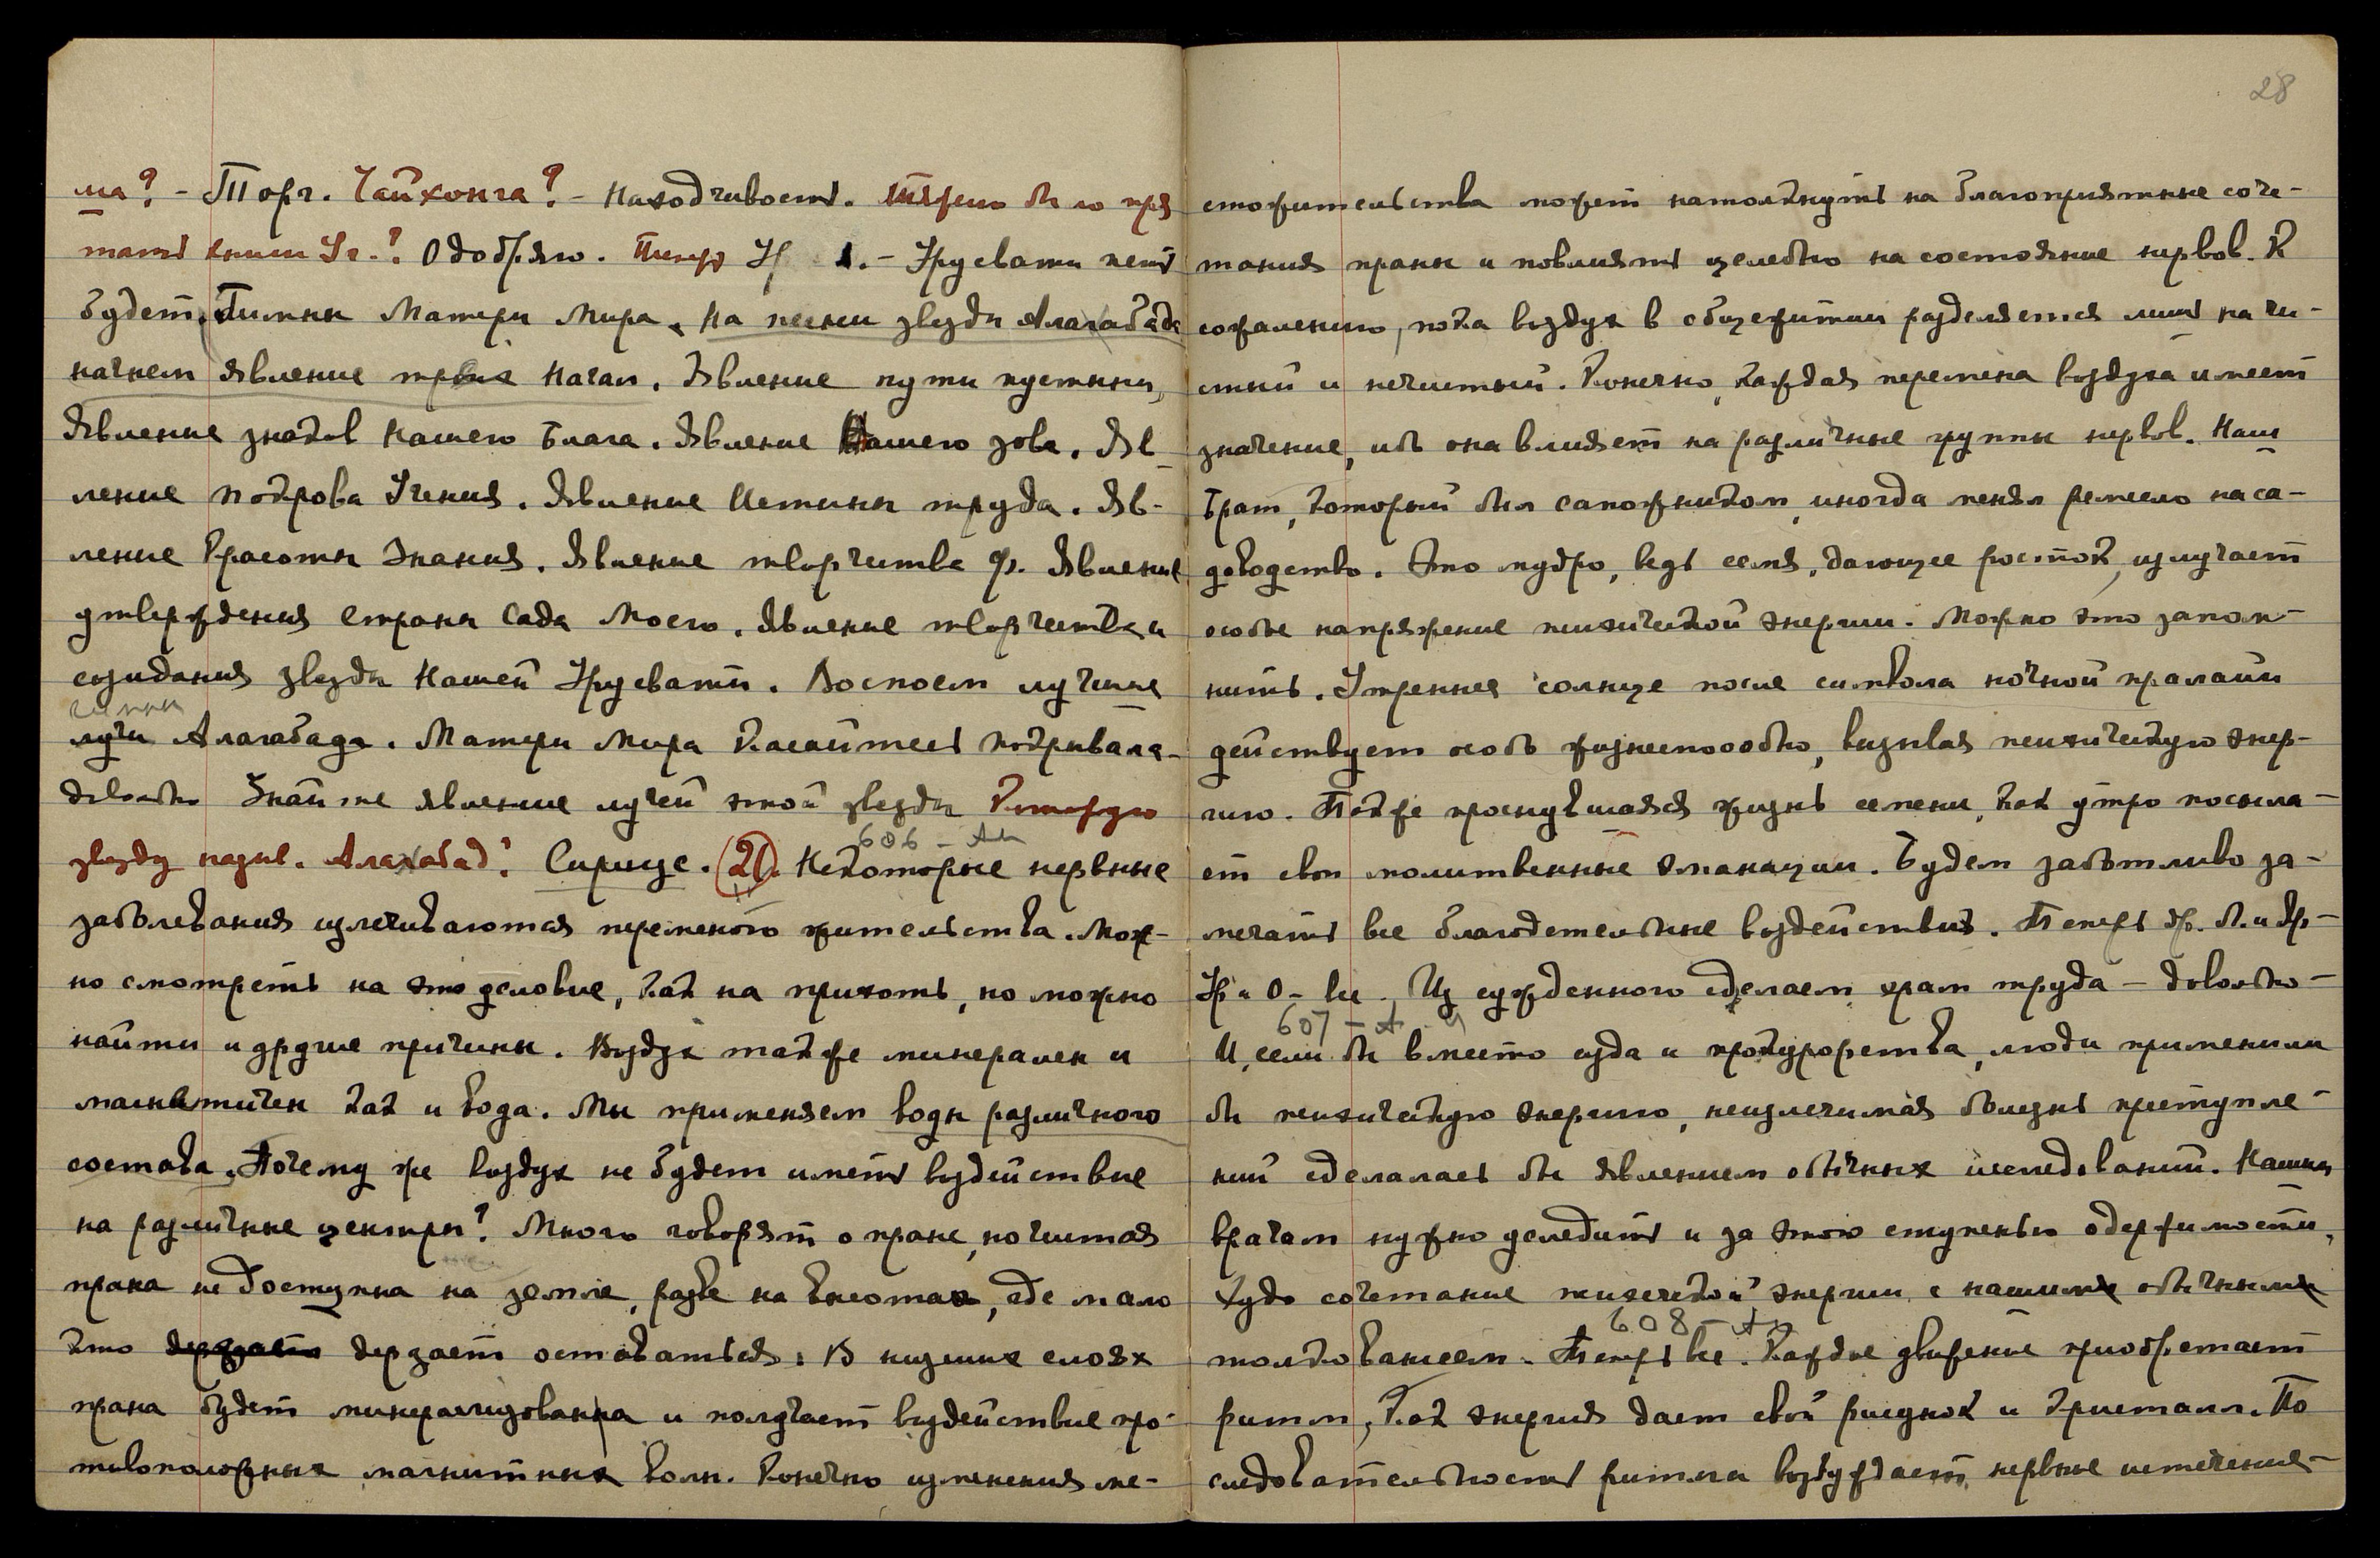 28
ма? - Торг. Чайхонга? - Находчивость. Тяжело бы ло пря
тать книги Уч.? Одобряю. Ур - Урусвати петь
будет, Гимны Матери Мира. На песни звезды Алагабада
начнем явление Начал. Явление пути пустыни,
Явление знаков Нашего Блага. Явление Нашего зова. Яв-
ление покрова Учения. Явление Истины труда. Яв-
ление Красоты Знания. Явление творчества Ф. Явление
утверждения Страны Сада Моего. Явление творчества и
созидания звезды Нашей Урусвати. Воспоем лучшие
гимны
лучи Алагабада. Матери Мира Касайтесь покрывала -
довольно Знай же явление лучей этой звезды Которую
звезду назыв. Алахабад? Сириус. (21). Некоторые нервные
606 - Ан
заболевания излечиваются переменою жительства. Мож-
но смотреть на это условие, как на прихоть, но можно
найти и другие причины. Воздух также минерален и
магнетичен как и вода. Мы применяем воды различного
состава. Почему же воздух не будет иметь воздействие
на различные центры? Много говорят о пране, но чистая
прана не доступна на земле, разве на высотах, где мало
кто дерзает дерзает оставаться. В низших слоях
прана будет минерализована и получает воздействие про-
тивоположных магнитных волн. Конечно изменения ме-
стожительства может натолкнуть на благоприятные соче-
тания праны и повлиять целебно на состояние нервов. К
сожалению, пока воздух в общежитии разделяется лишь на чи-
стый и нечистый. Конечно, каждая перемена воздуха имеет
значение, ибо она влияет на различные группы нервов. Наш
Брат, который был сапожником, иногда менял ремесло на са-
доводство. Это мудро, ведь семя, дающее росток, излучает
особое напряжение психической энергии. Можно это запом-
нить. Утреннее солнце после символа ночной пралайи
действует особо жизнеспособно, вызывая психическую энер-
гию. Также проснувшаяся жизнь семени, как утро посыла-
ет свои молитвенные эманации. Будем заботливо за-
мечать все благодетельные воздействия. Теперь Др. Л. и Др -
Ур и О - вы. Из сужденного сделаем храм труда - довольно -
607 - А
И, если бы вместо суда и прокурорства, люди применили
бы психическую энергию, неизлечимая болезнь преступле-
ний сделалась бы явлением обычных исследований. Нашим
врачам нужно уследить и за этою ступенью одержимости,
Худо сочетание психической энергии с нашим обычным
608 - Ан
толкованием. Теперь вы. Каждое движение приобретает
ритм, Как энергия дает свой рисунок и Кристалл. По
следовательность ритма возбуждает нервные истечения -